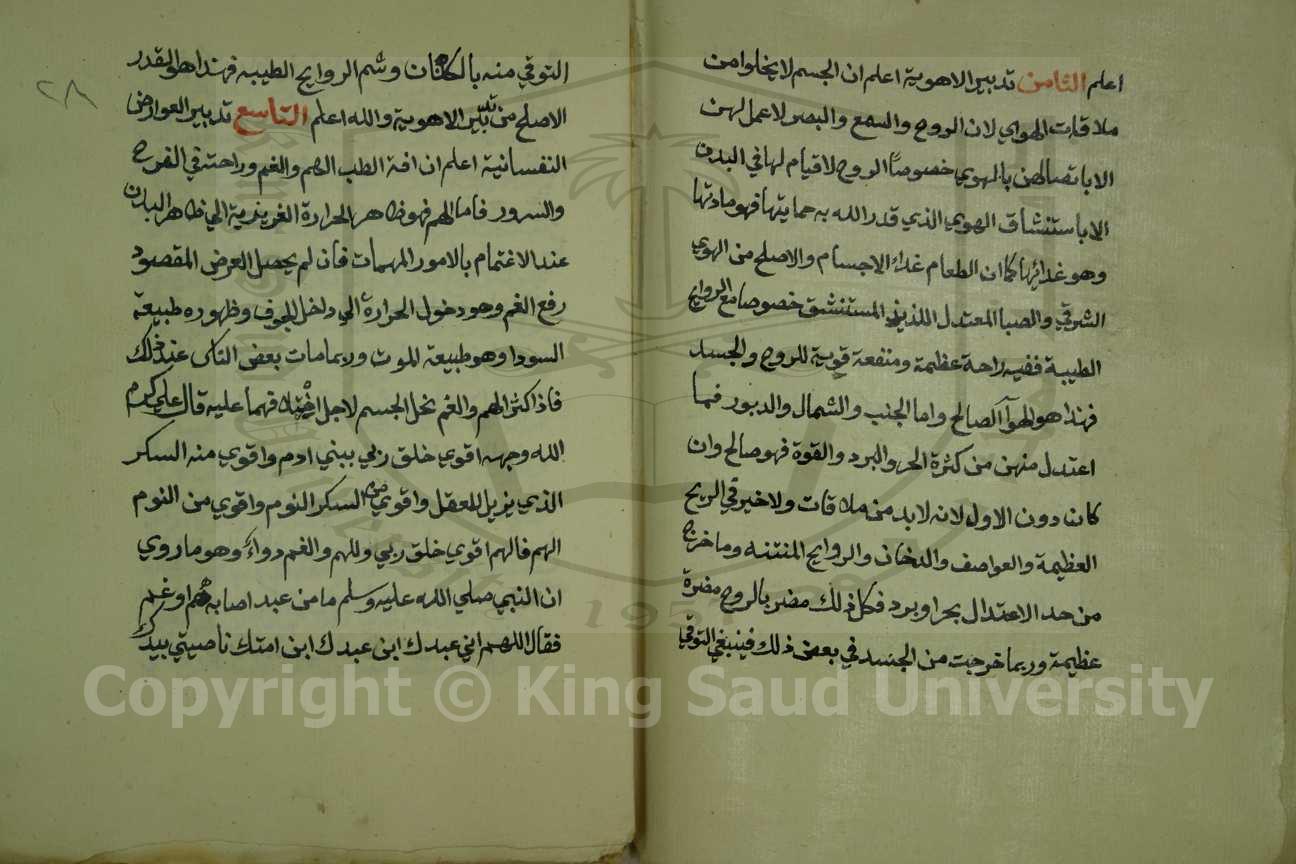 اعلم الثامن تدبير الاهوية اعلم ان الجسم لا يخلوا من
ملاقات الهوي لان الروح والسمع والبصر لا عمل لهن
الا باتصالهن بالهوي خصوصا الروح لا قيام لها في البدن
الا باستنشاق الهوي الذي قدر الله به حمايتها فهو مادتها
وهو غدائها كما ان الطعام غداء الاجسام والاصلح من الهوي
الشرقي والصبا المعتدل اللذيذ المستنشق خصوصا مع الروايح
الطيبة ففيه راحة عظيمة ومنفعة قوية للروح والجسد
فهذا هو الهوآ الصالح واما الجنب والشمال والدبور فما
اعتدل منهن من كثرة الحر والبرد والقوة فهو صالح وان
كانت دون الاول لانه لا بد من ملاقات ولا خير في الريح
العظيمة والعواصف والدخان والروايح المنتنه وما خرج
من حد الاعتدال بحر او برد فكل ذلك مضر بالروح مضرة
عظيمة وربما خرجت من الجسد في بعض ذلك فينبغي التوقي
التوقي منه بالكنان وشم الروايح الطيبه فهذا هو القدر
الاصلح من تدبير الاهوية والله اعلم التاسع تدبير العوارض
النفسانية اعلم ان افة الطب الهم والغم وراحته في الفرح
والسرور فاما الهم فهو ظاهر الحرارة الغريزية الي ظاهر البدن
عند الاغتمام بالامور المهمات فان لم يحصل العرض المقصود
رفع الغم وهو دخول الحرارة الي داخل الجوف وظهوره طبيعة
السودا وهو طبيعة الموت وربما مات بعض الناس عند ذلك
فاذا كثر الهم والغم نحل الجسم لاجل فهما عليه قال علي كرم
الله وجهه اقوي خلق ربي ببني ادم واقوي منه السكر
الذي يزيل العقل واقوي من السكر النوم واقوي من النوم
الهم فالهم اقوي خلق ربي وللهم والغم دواء وهو ما روي
ان النبي صلي الله عليه وسلم ما من عبد اصابه هم او غم
فقال اللهم اني عبدك ابن عبدك ابن امتك ناصيتي بيدك
٢٨
Copyright © King Saud University
1957